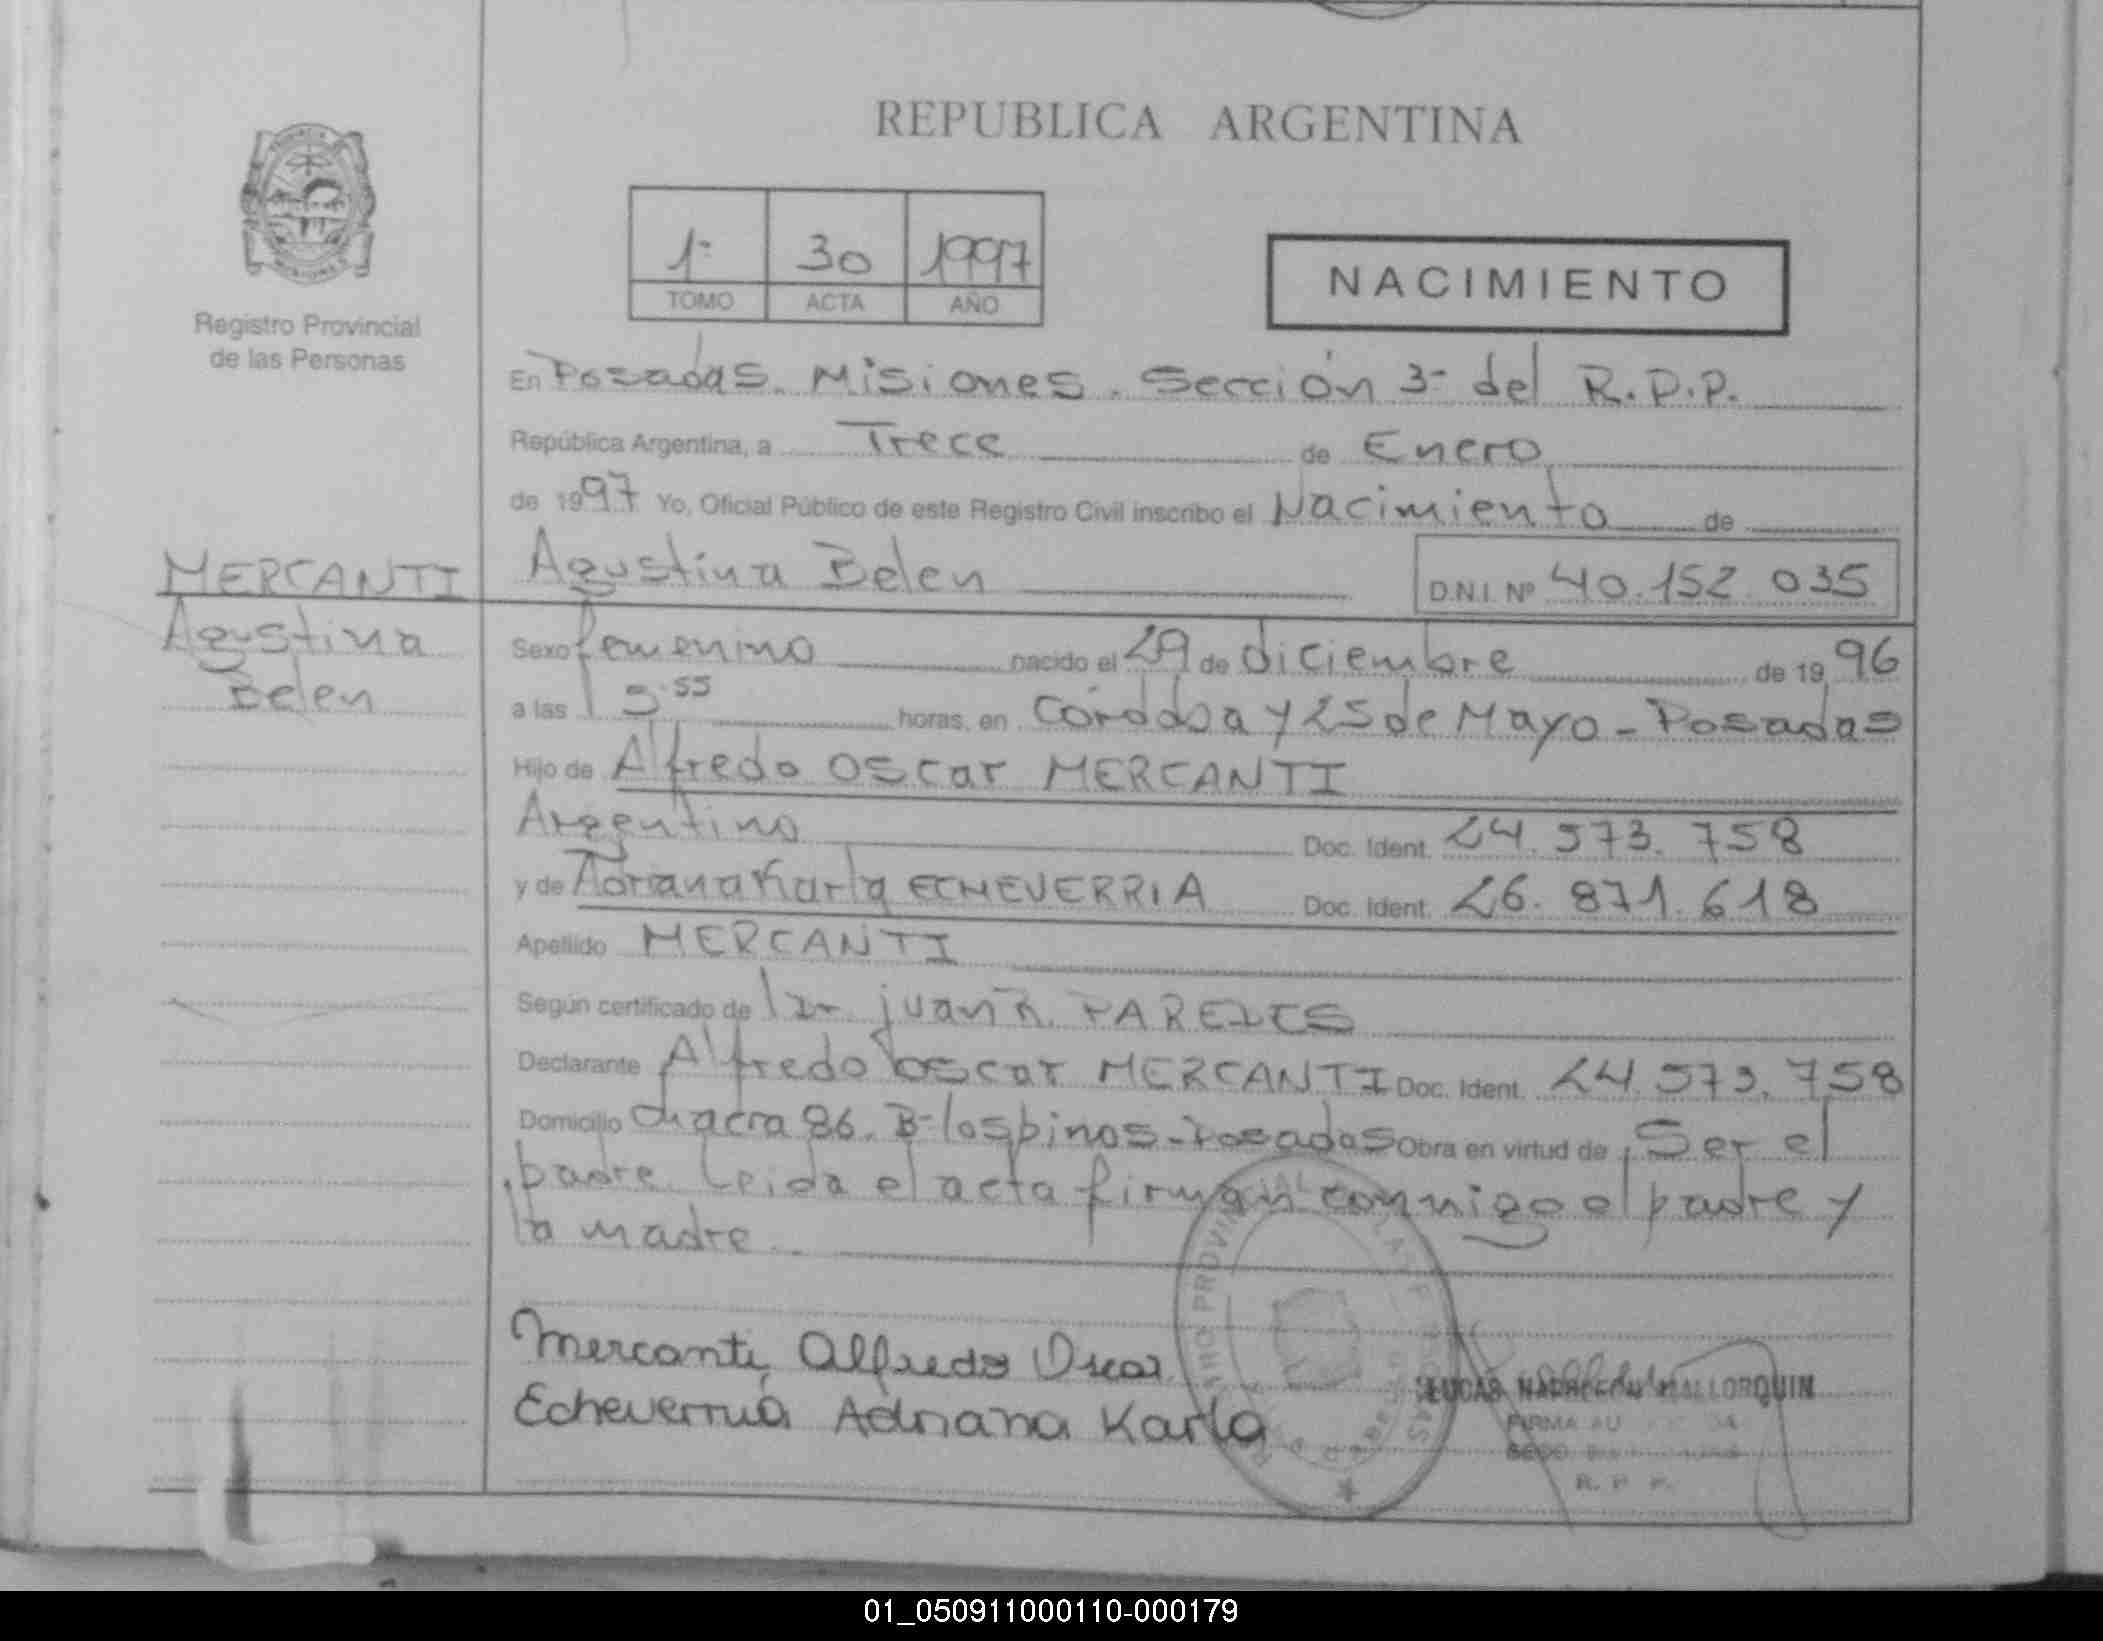 REPUBLICA ARGENTINA
1º 30 1997
TOMO ACTA AÑO
NACIMIENTO
Registro Provincial
de las Personas
En Posadas. Misiones. Sección 3ª del R.P.P.
República Argentina, a Trece de Enero
de 1997 Yo, Oficial Público de este Registro Civil inscribo el Nacimiento de
MERCANTI
Agustina
Belen
Agustina Belen D.N.I. Nº 40.152.035
Sexo femenino nacido el 29 de diciembre de 1996
a las horas, en Córdoba y 25 de Mayo - Posadas
Hijo de Alfredo Oscar MERCANTI
Argentino Doc. Ident. 24.573.758
y de Adriana Karla ECHEVERRIA Doc. Ident. 26.871.618
Apellido MERCANTI
Según certificado de Dr. Juan R. PAREDES
Declarante Alfredo Oscar MERCANTI Doc. Ident. 24.573.758
Domicilio Chacra 86. Bº los pinos - Posadas Obra en virtud de Ser el
padre. Leida el acta firman conmigo el padre y
la madre
Mercanti, Alfredo Oscar
Echeverria Adriana Karla
LUCAS MALLORQUIN
FIRMA
R. P. P.
01_050911000110-000179